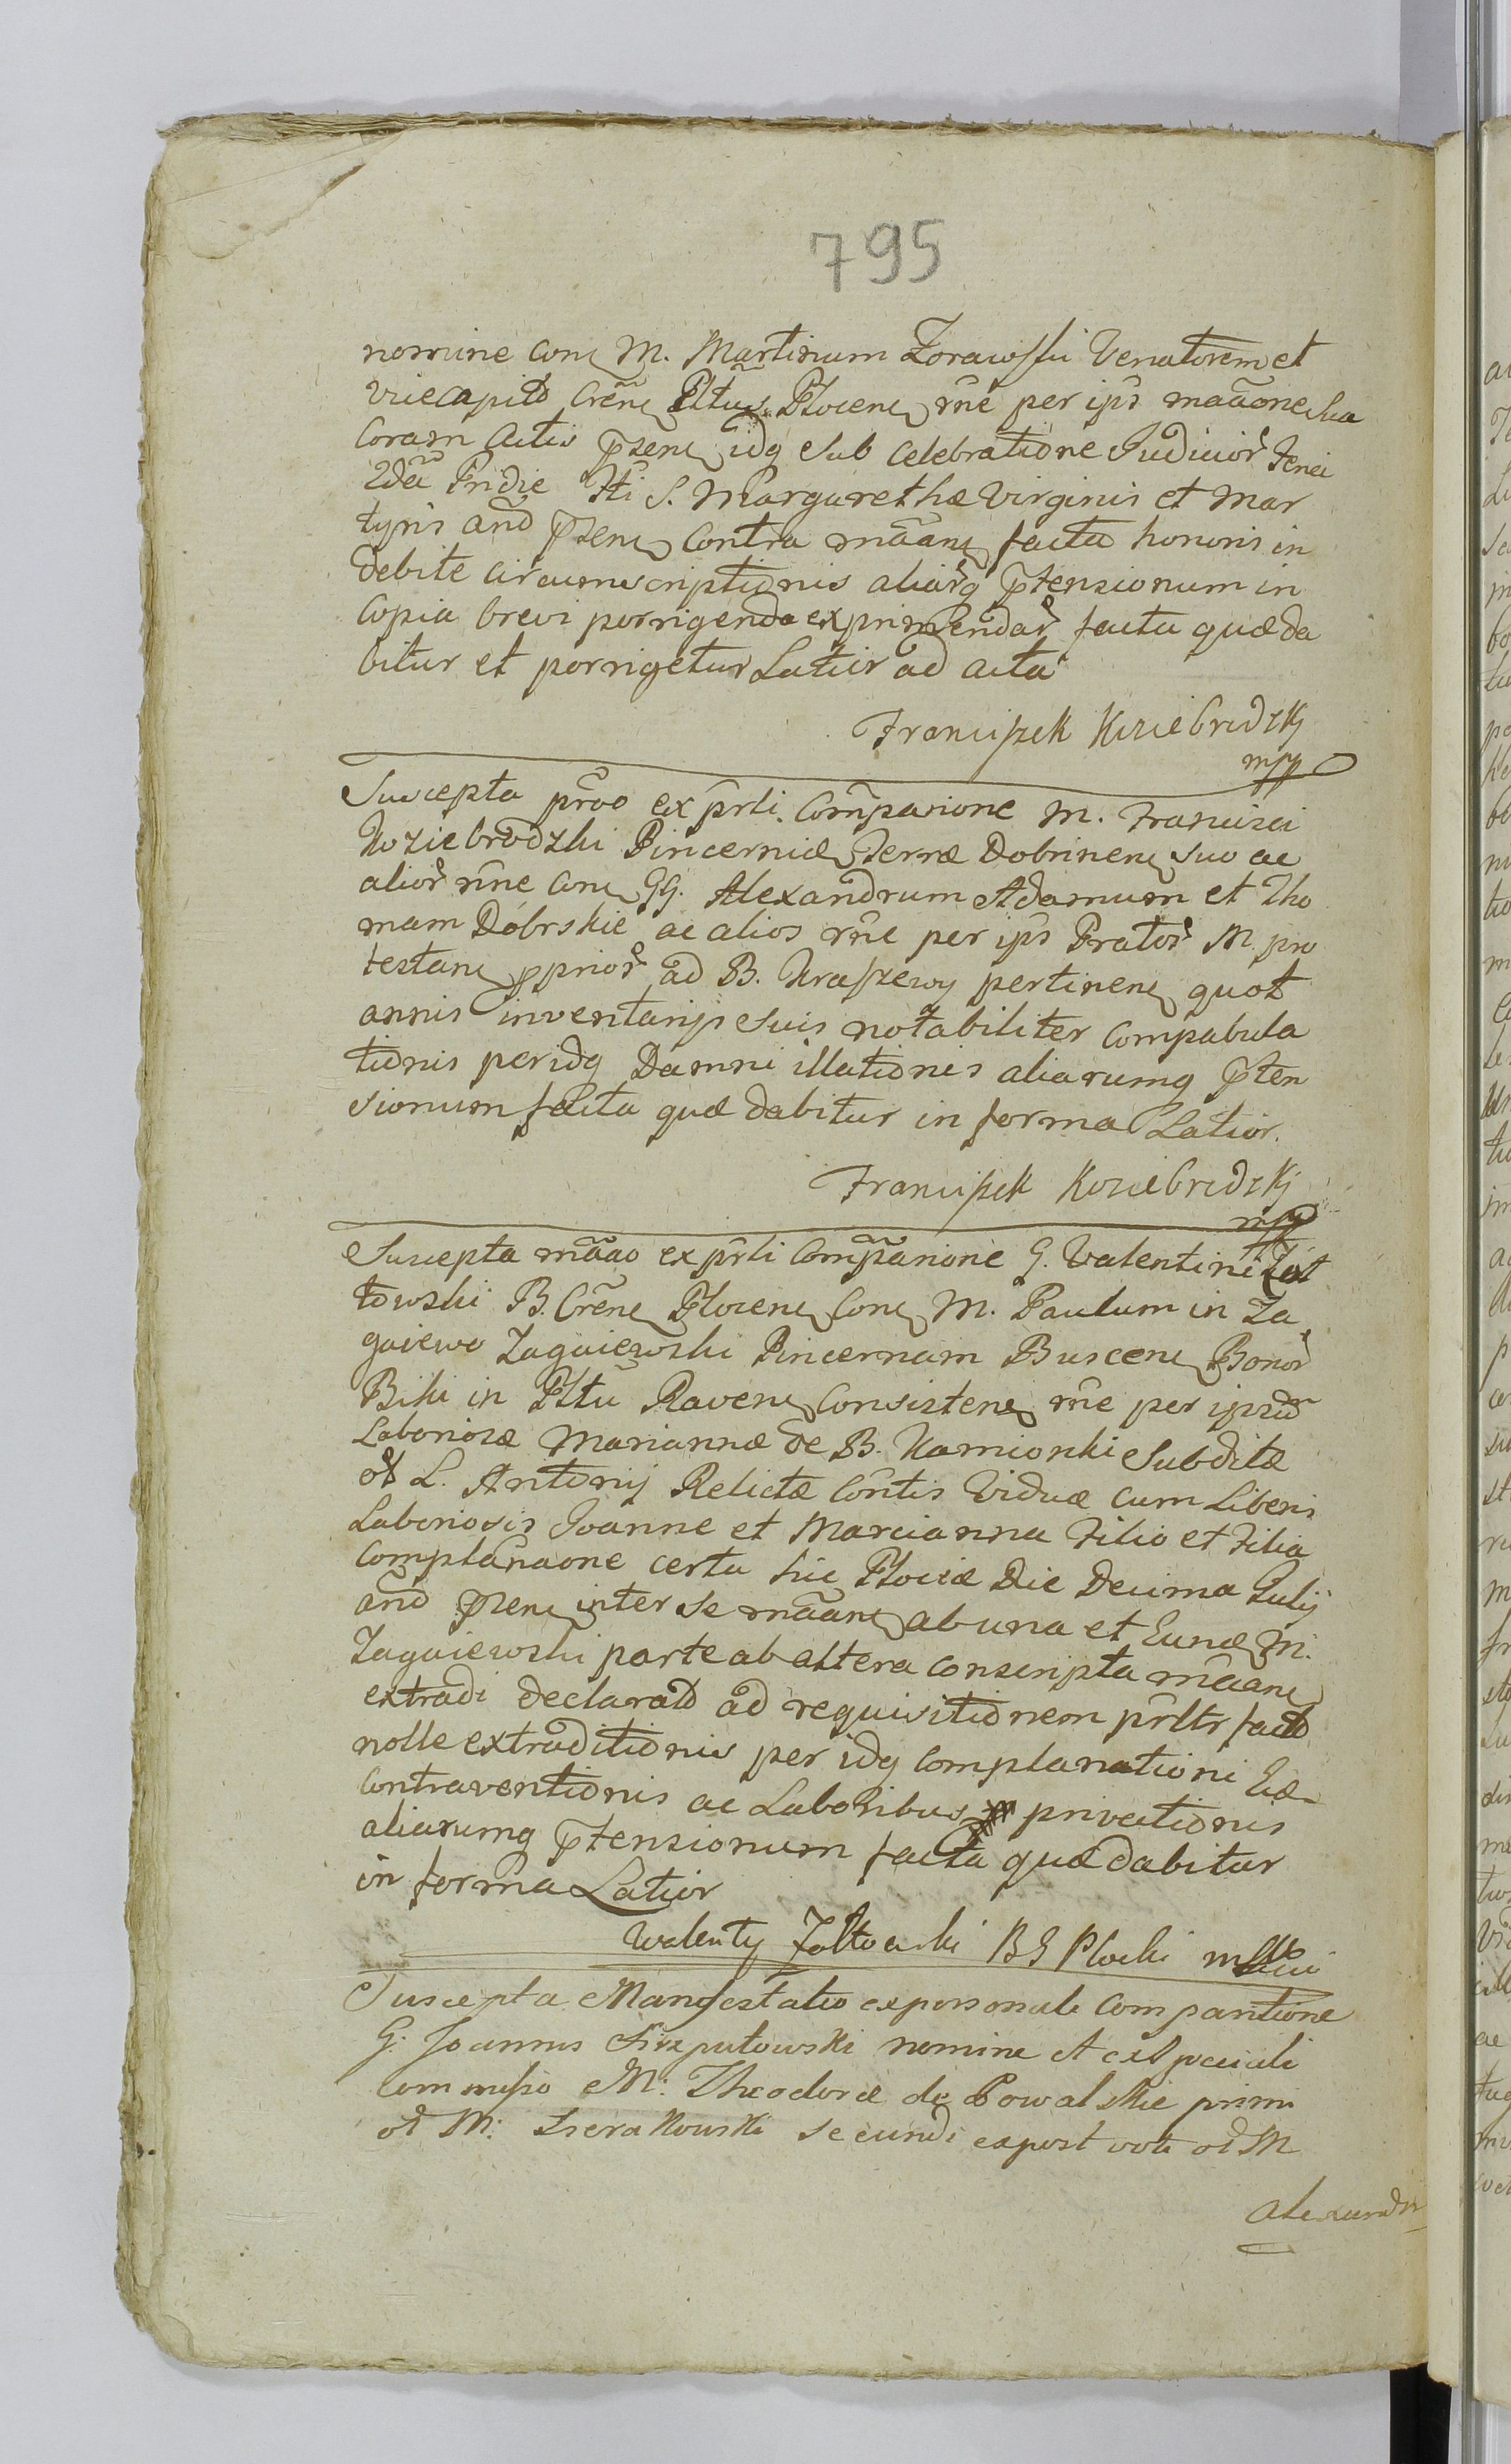 795
nomine con M. Martinum Zorawski Venatorem et
vicecapitō Crēn Pltūs Plocen rñe per ips mãaoneska
Coram Actis p̄sen idq sub celebratione Judicior Feria
2dã Pridie Fti S. Margarethæ Virginis et Mar
tyris anō p̄sen contra mãan facta honoris in
debite circumscriptionis aliarq p̄tensionum in
Copia brevi porrigenda exprimendar facta quæ da
bitur et porrigetur Latior ad acta
Franciszek KoziebrodzKj
mpp
Suscepta prõo ex prli Comparione M. Francisci
Koziebrodzki Pincernæ Terræ Dobrinen suo ac
alior rñe con GG. Alexandrum Adamum et Tho
mam Dobrskie ac alios rñe per ips Prator M. pro
testan pprior ad B. Kraszewy pertinen quot
annis inventarijs suis notabiliter compabula
tionis peridq Damni illationis aliarumq p̄ten
sionum facta quæ dabitur in forma Latior.
Franciszek KoziebrodzKj
mpp
Suscepta mãao ex prli Compãrione G. Valentini Zół
towski B. Crēn Plocen Con M. Paulum in Za
gaiewo Zagaiewski Pincernam Buscen Bonor
Biki in Pltū Raven Consisten rñe per ipsũ
Laboriosæ Mariannæ de B. Kamionki Subditæ
oł L. Antonij Relictæ Cõntis Viduæ cum Liberis
Laboriosis Joanne et Marcianna Filio et Filia
Complañaone certa hic Plociæ Die Decima Julij
anō p̄sen inter se mãan ab una et Eunđ M.
Zagaiewski parte ab altera conscripta mãan
extradi declarato ad requisitionem prlts facto
nolle extraditionis per idq complanationi Eid
contraventionis ac Laboribus privationis
aliarumq p̄tensionum facta quæ dabitur
in forma Latior
Walenty Zołtowski B G Płocki mpp
Suscepta Manifestatio ex personali Comparitione
G: Joannis Strzpułowski nomine et ex speciali
Commisso M: Theodoræ de Powalskie primi
oł M: SieraKowsKi secundi expost voti oł M
Alexandri